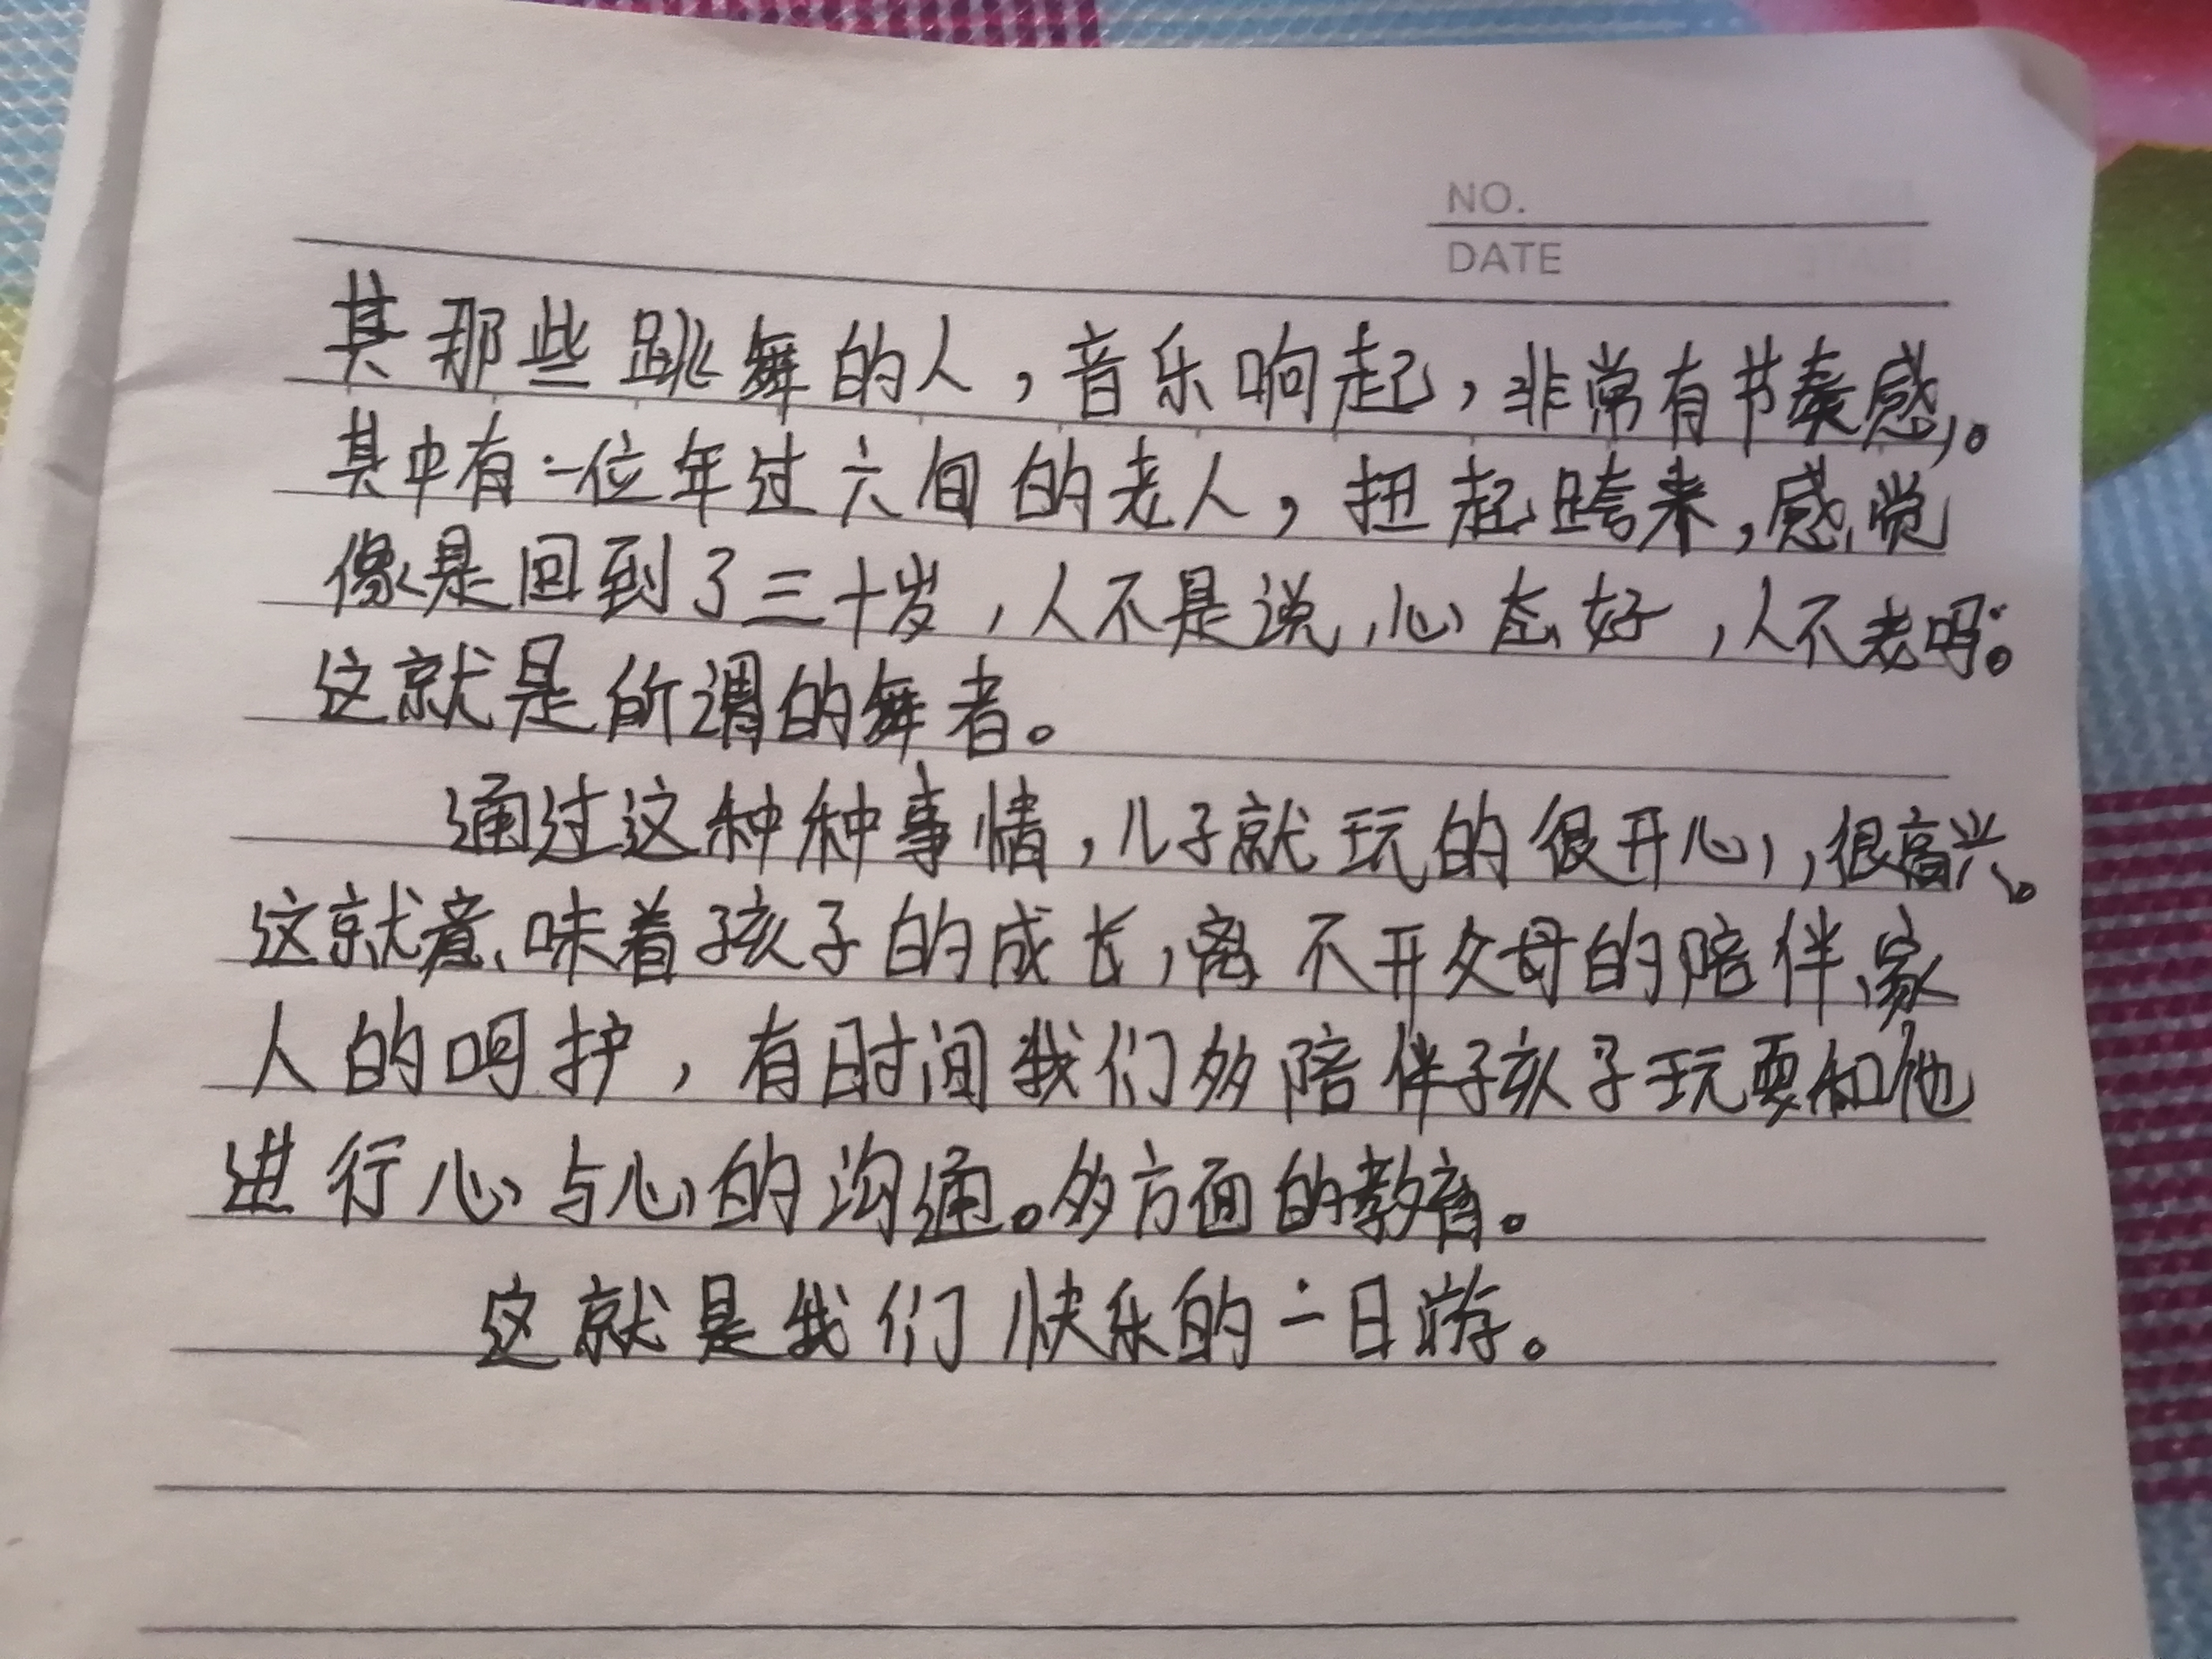 NO.
DATE
其那些跳舞的人，音乐响起，非常有节奏感。
其中有一位年过六旬的老人，扭起跨来，感觉
像是回到了三十岁，人不是说，心态好，人不老吗。
这就是所谓的舞者。
通过这种种事情，儿子就玩的很开心，很高兴。
这就意味着孩子的成长，离不开父母的陪伴、家
人的呵护，有时间我们多陪伴孩子玩耍和他
进行心与心的沟通。多方面的教育。
这就是我们快乐的一日游。